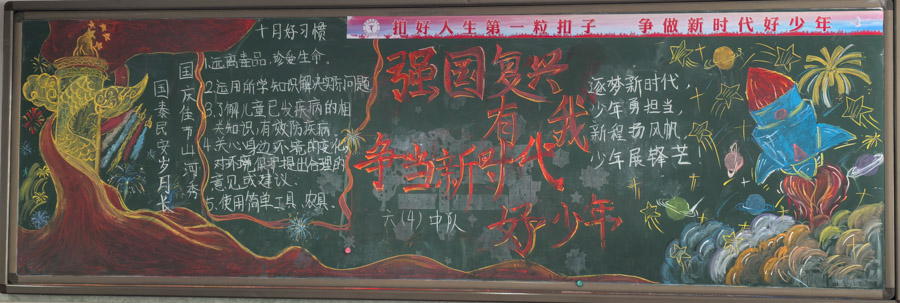 扣好人生第一粒扣子 争做新时代好少年
国庆佳节山河秀
国泰民安岁月长
十月好习惯
1.远离毒品,珍爱生命。
2.运用所学知识解决实际问题
3.了解儿童已发疾病的相
关知识,有效防疾病。
4.关心身边环境的变化,
对环境保护提出合理的
意见或建议。
5.使用简单工具、农具。
强国复兴
有我
争当新时代
好少年
六(4)中队
逐梦新时代,
少年勇担当,
新程扬风帆,
少年展锋芒